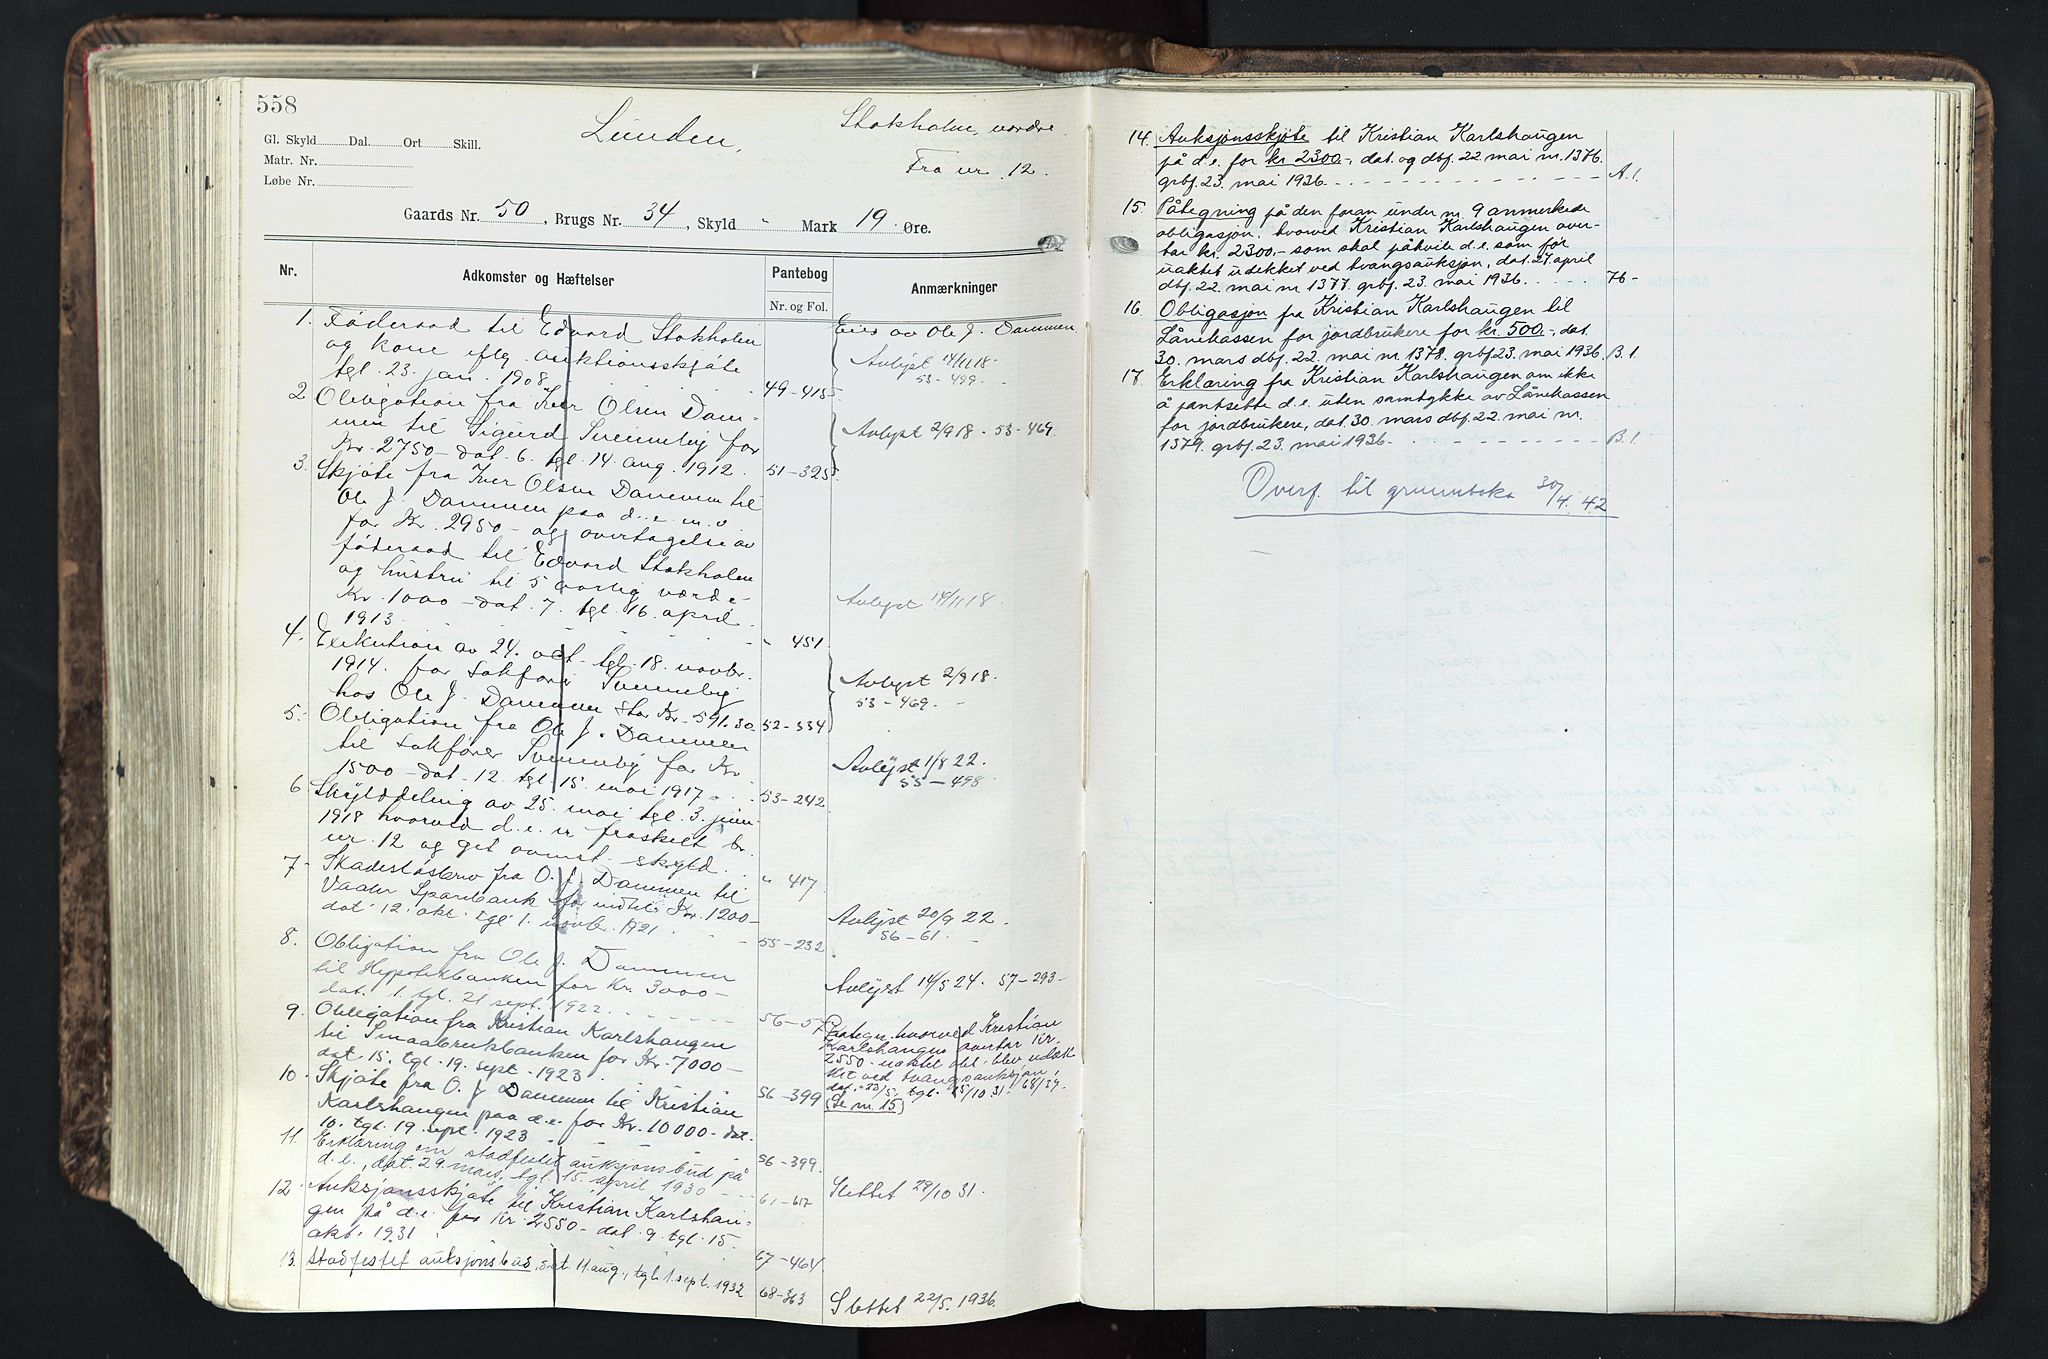 558
Gl. Skyld Dal. Ort Skill.
Matr. Nr.
Løbe Nr.
Lunden,
Stokholm, nordre.
Fra nr. 12.
Gaards Nr. 50, Brugs Nr. 34, Skyld " Mark 19 Øre.
Nr.
Adkomster og Hæftelser
Pantebog
Nr. og Fol.
Anmærkninger
1. Føderaad til Edvard Stokholm
og kone iflg. auktionsskjøte
tgl. 23. jan. 1908. 49-415
2. Obligation fra Iver Olsen Dam-
men til Sigurd Svenneby for
Kr. 2750 - dat. 6. tgl. 14. aug. 1912. 51-325
3. Skjøte fra Iver Olsen Dammen til
Ole J. Dammen paa d.e. m.v.
for Kr. 2950 - og overtagelse av
føderaad til Edvard Stokholm
og hustru til 5 aarlig værdi
Kr. 1000 - dat. 7. tgl. 16. april
1913. " 451
4. Exekution av 24. okt. tgl. 18. novbr.
1914. for sakfører Svenneby
hos Ole J. Dammen stor Kr. 591.30 52-334
5. Obligation fra Ole J. Dammen
til sakfører Svenneby for Kr
1500 - dat. 12. tgl. 15. mai 1917. 53-242
6. Skylddeling av 25. mai tgl. 3. juni
1918 hvorved d.e. er fraskilt br.
nr. 12 og git ovenst. skyld. " 417
7. Skadesløsbrev fra O. J. Dammen til
Vaaler Sparebank for indtil Kr. 1200 -
dat. 12. okt. tgl. 1. novbr. 1921. 55-232
8. Obligation fra Ole J. Dammen
til Hypotekbanken for Kr. 3000 -
dat. 1. tgl. 21 sept. 1922. 56-57
9. Obligation fra Kristian Karlshaugen
til Smaabrukbanken for Kr. 7000 -
dat. 15. tgl. 19. sept. 1923. 56-399
10. Skjøte fra O. J Dammen til Kristian
Karlshaugen paa d.e. for Kr. 10000 - dat.
10. tgl. 19. sept. 1923 56-399.
11. Erklæring om stadfestet auksjonsbud på
d.e., dat. 29. mars, tgl. 15. april 1930 61-617
12. Auksjonsskjøte til Kristian Karlshau-
gen på d.e. for Kr. 2550 - dat. 9. tgl. 15.
okt. 1931 67-464
13. Stadfestet auksjonsbud, dat. 11 aug., tgl. 1. sept. 1932. 68-363
Eies av Ole J. Dammen
Avlyst 14/11 18.
53-499.
Avlyst 2/9 18. 53-469.
Avlyst 14/11 18.
Avlyst 2/9 18.
53-469.
Avlyst 1/8 22.
55-498
Avlyst 20/9 22.
56-61.
Avlyst 14/5 24. 57-293-
Paategn. hvorved Kristian
Karlshaugen overtar Kr.
2550 - uaktet obl. blev udæk-
ket ved tvangsauksjon,
dat. 23/5, tgl. 15/10 31. 68/39-
(Se nr. 15)
Slettet 29/10 31.
Slettet 22/5. 1936.
14. Auksjonsskjøte til Kristian Karlshaugen
på d.e. for kr 2300.-, dat. og dbf. 22. mai nr. 1376.
grbf. 23. mai 1936. A.1.
15. Påtegning på den foran under nr. 9 anmerkede
obligasjon, hvorved Kristian Karlshaugen over-
tar kr. 2300,- som skal påhvile d.e. som før
uaktet udekket ved tvangsauksjon, dat. 27. april
dbf. 22. mai nr 1377. grbf. 23. mai 1936. 76-
16. Obligasjon fra Kristian Karlshaugen til
Lånekassen for jordbrukere for kr. 500.-, dat.
30. mars dbf. 22. mai nr 1378. grbf. 23. mai 1936. B.1.
17. Erklæring fra Kristian Karlshaugen om ikke
å pantsette d.e. uten samtykke av Lånekassen
for jordbrukere, dat. 30. mars dbf. 22. mai nr.
1379. grbf. 23. mai 1936. B.1.
Overf. til grunnboka 30/4. 42